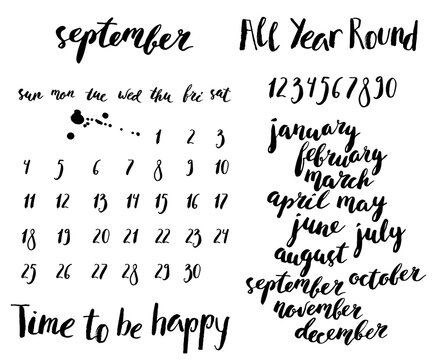 september
sun mon tue wed thu fri sat
1 2 3
4 5 6 7 8 9 10
11 12 13 14 15 16 17
18 19 20 21 22 23 24
25 26 27 28 29 30
Time to be happy
All Year Round
1234567890
january
february
march
april may
june july
august
september october
november
december